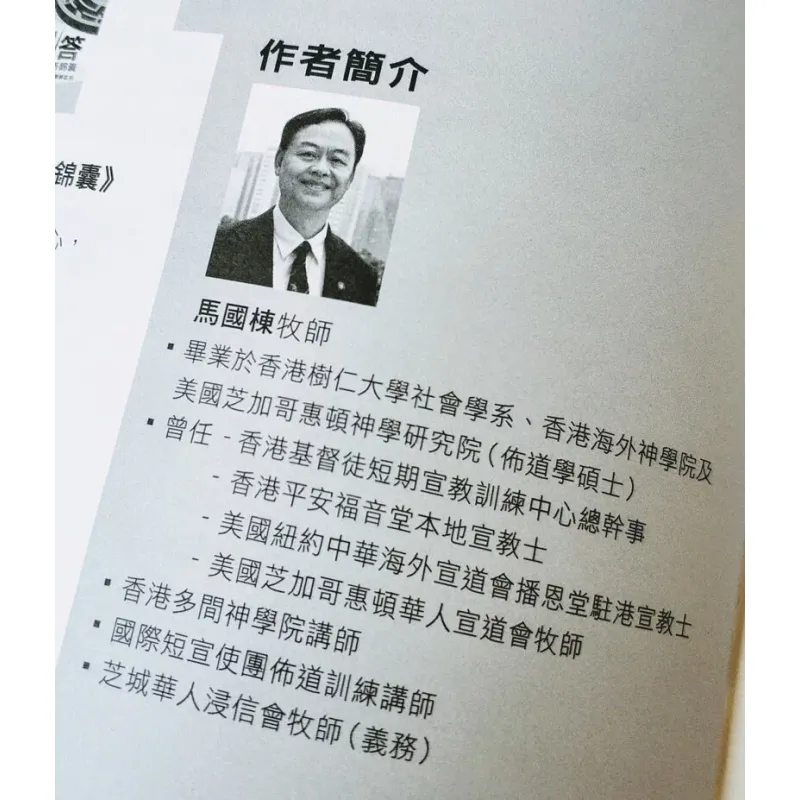 答
錦囊》
心，
作者簡介
馬國棟牧師
▪ 畢業於香港樹仁大學社會學系、香港海外神學院及
美國芝加哥惠頓神學研究院（佈道學碩士）
▪ 曾任 - 香港基督徒短期宣教訓練中心總幹事
- 香港平安福音堂本地宣教士
- 美國紐約中華海外宣道會播恩堂駐港宣教士
- 美國芝加哥惠頓華人宣道會牧師
▪ 香港多間神學院講師
▪ 國際短宣使團佈道訓練講師
▪ 芝城華人浸信會牧師（義務）